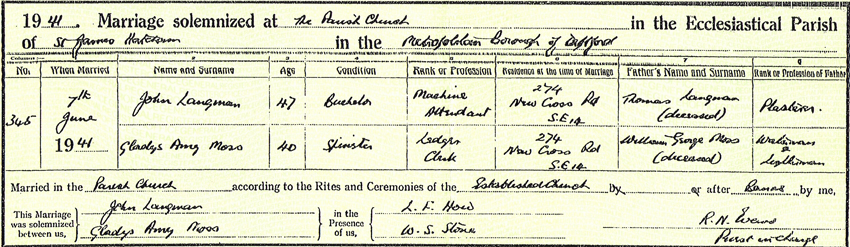 1941. Marriage solemnized at The Parish Church in the Ecclesiastical Parish
of St James Hatcham in the Metropolitan Borough of Deptford
Columns:— 1 2 3 4 5 6 7 8
No. When Married Name and Surname Age Condition Rank or Profession Residence at the time of Marriage Father's Name and Surname Rank or Profession of Father
345 7th June 1941 John Langman 47 Bachelor Machine Attendant 274 New Cross Rd S.E.14 Thomas Langman (deceased) Plasterer.
Gladys Amy Moss 40 Spinster Ledger Clerk 274 New Cross Rd S.E.14 William George Moss (deceased) Waterman & Lighterman
Married in the Parish Church according to the Rites and Ceremonies of the Established Church by or after Banns by me,
This Marriage was solemnized between us, John Langman Gladys Amy Moss in the Presence of us, L. E. How W. S. R. N.
Priest in charge